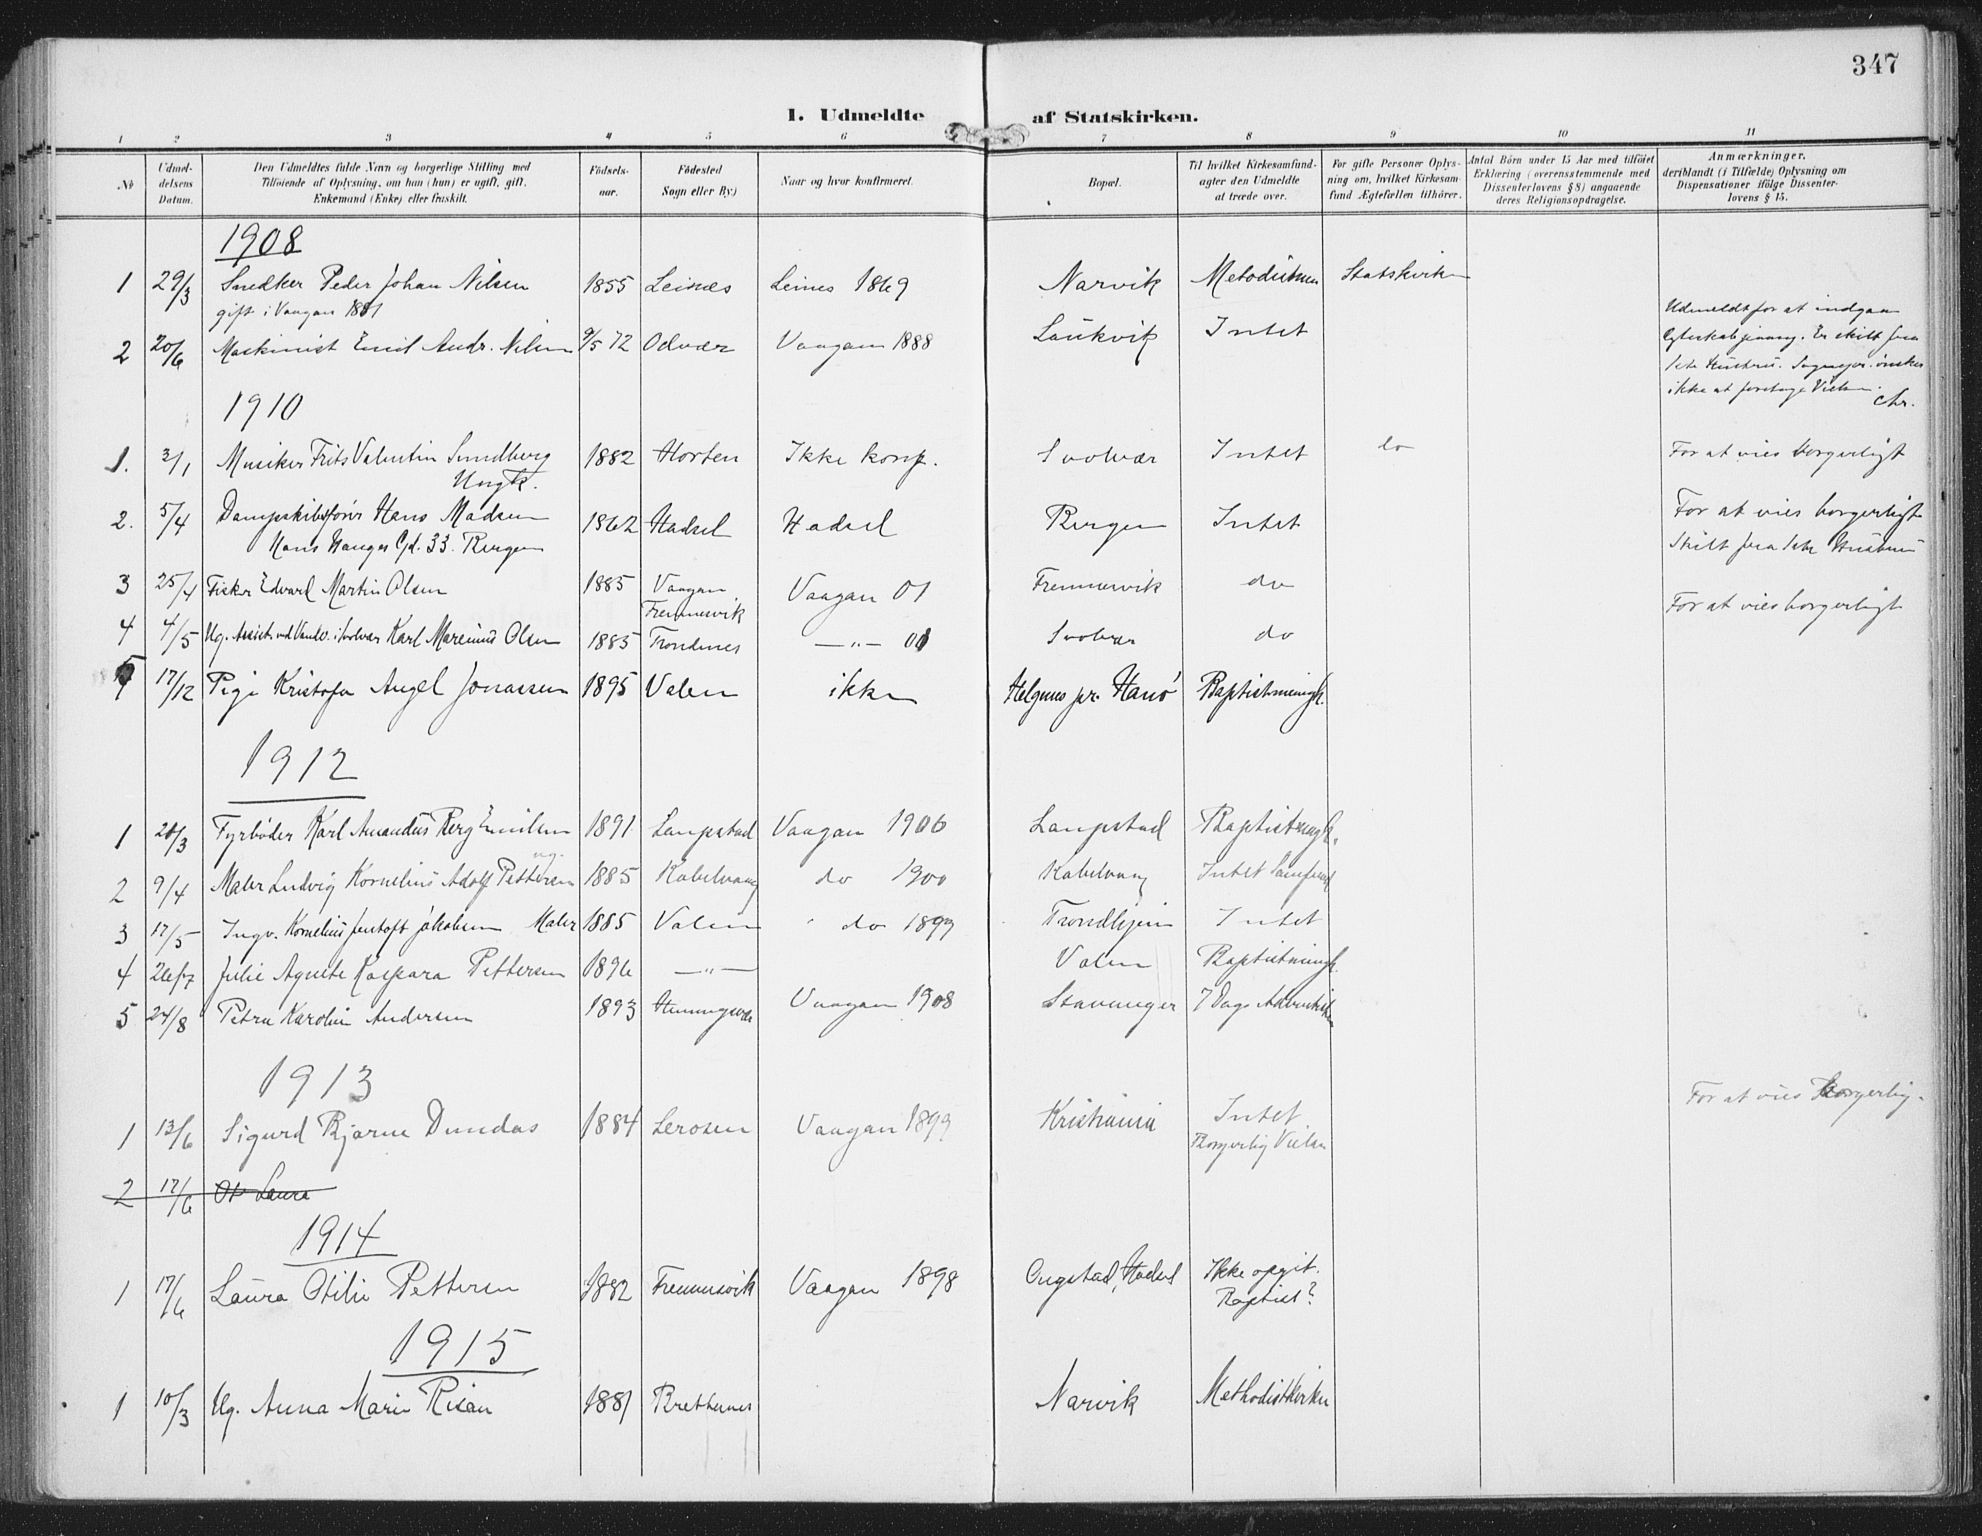 347
1. Udmeldte af Statskirken.
1 2 3 4 5 6 7 8 9 10 11
No
Udmel-
delsens
Datum.
Den Udmeldtes fulde Navn og borgerlige Stilling med
Tilføiende af Oplysning, om han (hun) er ugift, gift,
Enkemand (Enke) eller fraskilt.
Födsels-
aar.
Födested
Sogn eller By.)
Naar og hvor konfirmeret.
Bopæl.
Til hvilket Kirkesamfund-
agter den Udmeldte
at træde over.
For gifte Personer Oplys-
ning om, hvilket Kirkesam-
fund Ægtefællen tilhörer.
Antal Börn under 15 Aar med tilföiet
Erklæring (overensstemmende med
Dissenterlovens § 8) angaaende
deres Religionsopdragelse.
Anmærkninger,
deriblandt (i Tilfælde) Oplysning om
Dispensationer ifölge Dissenter-
lovens § 15.
1908
1 29/3 Snedker Peder Johan Nilsen 1855 Leines Leines 1869 Narvik Metodistmen Statskirken
gift i Vaagan 1881
2 20/6 Maskinist Emil Andr. Nilsen 9/5 72 Odvær Vaagan 1888 Laukvik Intet
Udmeldt for at indgaa
. Er skilt fra
1ste Hustru. Sogneprv. ønsker
ikke at foretage Vielsen.
Chr.
1910
1. 3/1 Musiker Frits Valentin Sundberg 1882 Horten Ikke konf. Svolvær Intet do For at vies borgerligt
Ungk.
2. 5/4 Dampskibsfører Hans Madsen 1862 Hadsel Hadsel Bergen Intet For at vies borgerligt
Hans Hauges Gd. 33. Bergen Skilt fra 1ste Hustru
3 25/4 Fisker Edvard Martin Olsen 1885 Vaagan Vaagan 01 Fremmervik do
Fremmervik For at vies borgerligt
4 4/5 Ug. Assist. ved i Svolvær Karl Marenius Olsen 1885 Trondenes —"— 01 Svolvær do
5 17/12 Pige Kristofa Angel Jonassen 1895 Valen ikke Helgenes pr. Hanø Baptistmenigh.
1912
1 20/3 Fyrbøder Karl Amandus Berg Emilsen 1891 Laupstad Vaagan 1906 Laupstad Baptistmenigh.
ug.
2 9/4 Maler Ludvig Kornelius Adolf Pettersen 1885 Kabelvaag do 1900 Kabelvaag Intet Samfund
3 17/5 Ingv. Kornelius Jentoft Jakobsen Maler 1885 Valen do 1899 Trondhjem Intet
4 26/7 Julie Agnete Kaspara Pettersen 1896 —"— Valen Baptistmenigh.
5 24/8 Petra Karolin Andersen 1893 Henningsvær Vaagan 1908 Stavanger 7 Dags Adventisten
1913
1 13/6 Sigurd Bjarne Dundas 1884 Lerosen Vaagan 1899 Kristiania Intet For at vies Borgerlig.
Borgerlig Vielse
2 17/6 Ot Laura
1914
1 17/6 Laura Otilie Pettersen 1882 Fremmervik Vaagan 1898 Ongstad, Hadsel Ikke opgit.
Baptist?
1915
1 10/3 Ug. Anna Marie Risan 1881 Brettesnes Narvik Methodistkirken